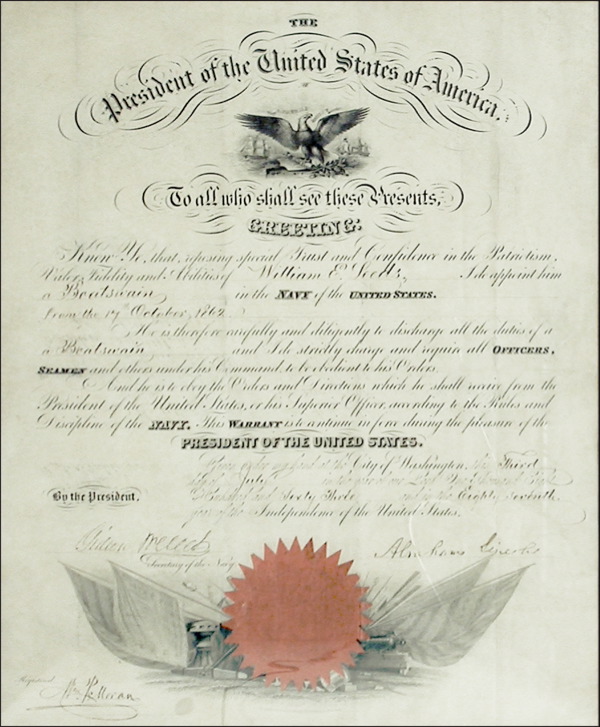 THE
President of the United States of America.
To all who shall see these Presents,
GREETING:
Know Ye, that, reposing special Trust and Confidence in the Patriotism,
Valor, Fidelity and Abilities of William E. I do appoint him
a Boatswain in the NAVY of the UNITED STATES.
from the 17 October, 1862.
He is therefore carefully and diligently to discharge all the duties of a
a Boatswain and I do strictly charge and require all OFFICERS,
SEAMEN and others under his Command, to be obedient to his Orders.
And he is to obey the Orders and Directions which he shall receive from the
President of the United States, or his Superior Officer, according to the Rules and
Discipline of the NAVY. This WARRANT is to continue in force during the pleasure of the
PRESIDENT OF THE UNITED STATES.
Given under my hand at the City of Washington, this Third
day of July in the year of our Lord One Thousand Eight
By the President.
Hundred and Sixty Three and in the Eighty Seventh
year of the Independence of the United States.
Gideon Welles
Abraham Lincoln
Secretary of the Navy
Registered